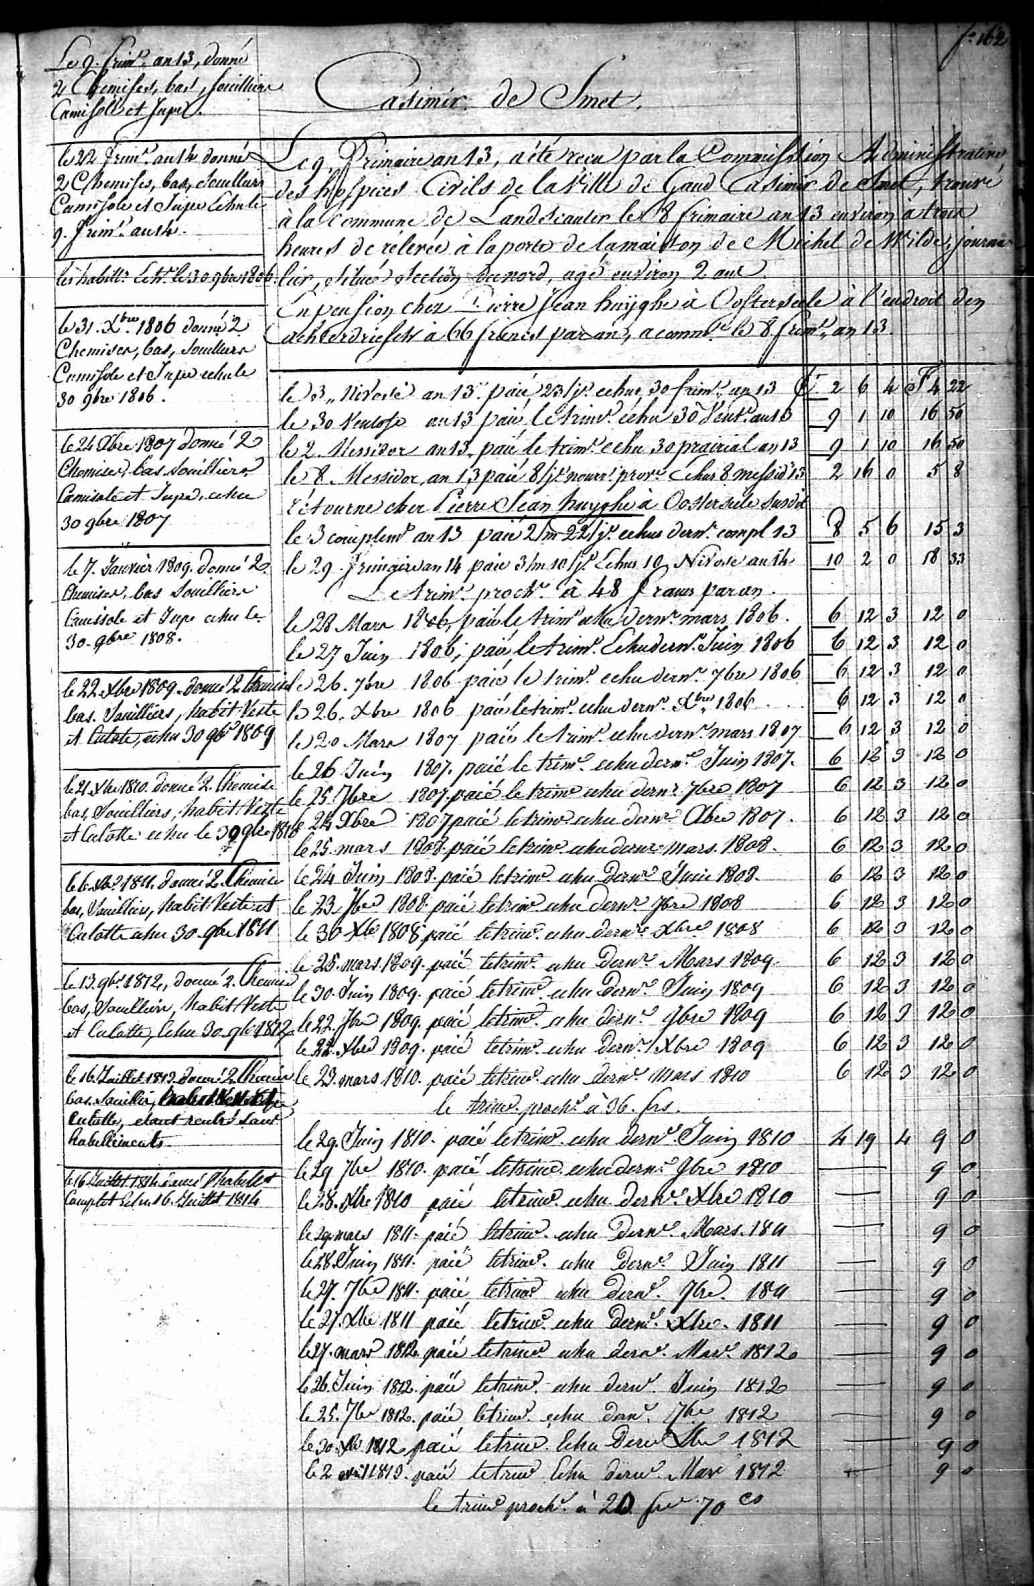 fo. 162
Casimir de Smet.
Le 9. frimre. an 13, donné
2 Chemises, bas, souilliers
Camisolle et Jupe.
le 22 frimre. an 14 donné
2 Chemises, bas, souilliers
Camisole et Jupe échu le
9. frimre. an 14.
les habillts. échs. le 30 9bre 1806
le 31. Xbre 1806 donné 2
Chemises, bas, souilliers
Camisole et Jupe echu le
30 9bre 1806.
le 24 Xbre 1807 donné 2
Chemises, bas souilliers
Camisole et Jupe, echu
30 9bre 1807
le 7. Janvier 1809. donné 2.
Chemises, bas Souilliers
Camisole et Jupe echu le.
30. 9bre 1808.
le 22. Xbre 1809. donné 2 Chemises
bas. Souilliers, habit Veste
et Culote, echu 30 9bre 1809
le 21. Xbre 1810. donné 2. Chemise
bas, Souilliers, habit. Veste
et Culotte echu le 30 9bre 1810
le 6. Xbre. 1811. donné 2. Chemise
bas, Souilliers, habit Veste et
Culotte echu 30. 9bre 1811
le 13. 9bre 1812, donné 2. Chemise
bas, Souilliers, habit. Veste
et Culotte, Echu 30. 9bre 1812
le 16. Juillet 1813. donné 2 Chemises
bas. Souillier, habit Veste et
Culotte, étant rentré sans
habillements.
le 16 Juillet 1814 donné l'habillt
Complet Echu 16. Juillet 1814
Le 9. Frimaire an 13, a été reçu par la Commission Administrative
des hospices Civils de la Ville de Gand Casimir de Smet, trouvé
à la Commune de Landscauter le 8 frimaire an 13 environ à trois
heures de relevée à la porte de la maison de Michel de Wilde, journa-
lier, située section du nord, agé environ 2 ans.
En pension chez Pierre Jean huijghe à Oosterseele à l'endroit den
Achterdriesch à 66 francs par an, a commcé. le 8 frimre. an 13
le 3,, Nivose an 13.. paié 23 jrs. echus 30 frimre. an 13 £. 2 6 4 F. 4 22
le 30 Ventose an 13 paié le trimre. echu 30 Vent. an 13 9 1 10 16 50
le 2. Messidor an 13. paié le trimre. echu 30 prairial an 13 9 1 10 16 50
le 8. Messidor, an 13 paié 8 jrs. nourr. prov. echus 8 messid. 13 2 16 0 5 8
retourne chez Pierre Jean huyghe à Oosterseele susdit
le 3 complemre an 13 paié 2 m 22 jrs. echus dernr. compl 13 8 5 6 15 3
le 29. Frimaire an 14 paié 3 m 10 jrs. Echus 10 Nivose an 14 10 2 0 18 33
Le trimre. prochn. à 48 francs par an.
le 28 Mars 1806, paié le trimre echu dernr. mars 1806. 6 12 3 12 0
le 27 Juin 1806, paié le trimre. Echu dernr. Juin 1806 6 12 3 12 0
le 26. 7bre 1806 paié le trimre. echu dernr. 7bre 1806 6 12 3 12 0
le 26. Xbre 1806 paié le trimre. echu dernr. Xbre 1806 6 12 3 12 0
le 20 Mars 1807 paié le trimre. echu dernr. mars 1807 6 12 3 12 0
le 26 Juin 1807. paié le trimre. echu dernr. Juin 1807. 6 12 3 12 0
le 25. 7bre 1807. paié le trimre echu dernr. 7bre 1807 6 12 3 12 0
le 24 Xbre 1807 paié le trimre echu dernr. Xbre 1807. 6 12 3 12 0
le 25. mars 1808. paié le trimre. echu dernr. mars. 1808. 6 12 3 12 0
le 24 Juin 1808. paié le trimre. echu dernr. Juin 1808. 6 12 3 12 0
le 23. 7bre 1808. paié le trimre. echu dernr. 7bre 1808 6 12 3 12 0
le 30 Xbre 1808 paié le trimre. echu dernr. Xbre 1808 6 12 3 12 0
le 25. mars 1809. paié le trimre. echu dernr. Mars 1809. 6 12 3 12 0
le 30. Juin 1809. paié le trimre. echu dernr. Juin 1809 6 12 3 12 0
le 22. 7bre 1809. paié le trimre. echu dernr. 9bre 1809 6 12 3 12 0
le 22. Xbre 1809. paié le trimre. echu dernr. Xbre 1809 6 12 3 12 0
le 23. mars 1810. paié le trimre. echu dernr. mars 1810 6 12 3 12 0
le trimre. prochn. à 36. frs.
le 29. Juin 1810. paié le trimre. echu dernr. Juin 1810 4 19 4 9 0
le 29 7bre 1810. paié le trimre. echu dernr. 9bre 1810 9 0
le 28. Xbre 1810 paié le trimre. echu dernr. Xbre 1810 9 0
le 29. mars 1811. paié le trimre. echu dernr. Mars. 1811 9 0
le 28. Juin 1811. paié le trimre. echu dernr. Juin 1811 9 0
le 27. 7bre 1811. paié le trimre echu dernr. 7bre. 1811 9 0
le 27. Xbre 1811 paié le trimre echu dernr. Xbre. 1811 9 0
le 27. mars 1812. paié le trimre echu dernr. Mars. 1812. 9 0
le 26. Juin 1812. paié le trimre. echu dernr. Juin 1812 9 0
le 25. 7bre 1812. paié le trimre. echu dernr. 7bre 1812 9 0
le 30. Xbre 1812 paié le trimre. Echu Dernr Xbre 1812 9 0
le 2 avril 1813. paié le trimre Echu dernr. Mars 1812 9 0
le trimre prochn. à 20 frs 70 cs